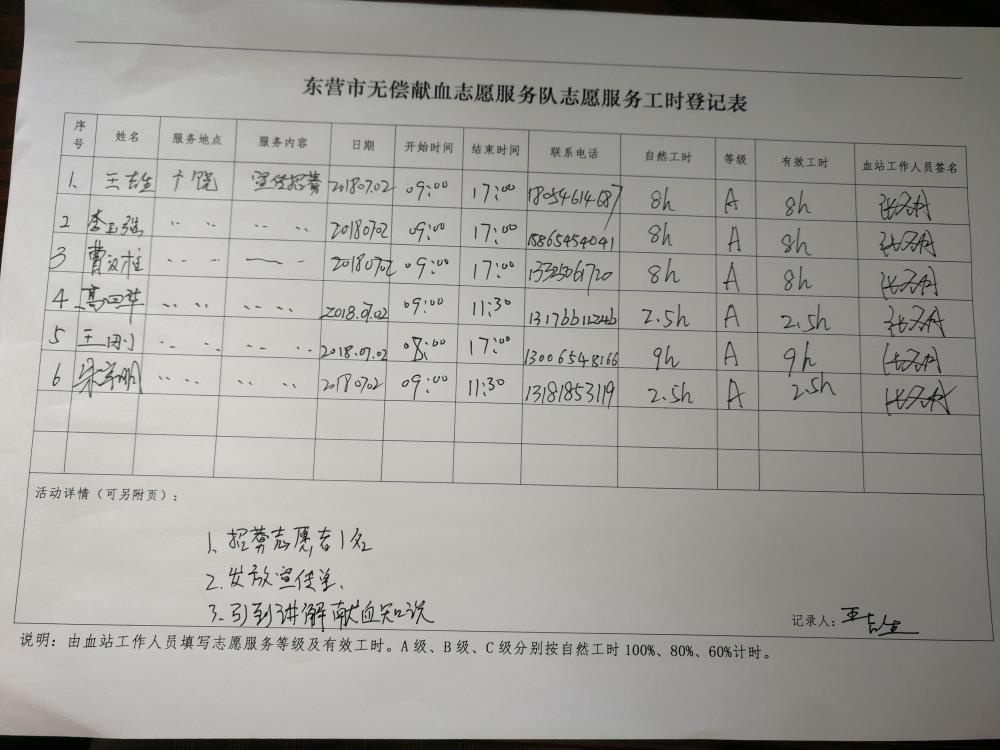 东营市无偿献血志愿服务队志愿服务工时登记表
序号 姓名 服务地点 服务内容 日期 开始时间 结束时间 联系电话 自然工时 等级 有效工时 血站工作人员签名
1、 王志生 广饶 宣传招募 20180702 09:00 17:00 18054614687 8h A 8h
2 李玉强 20180702 09:00 17:00 15865454041 8h A 8h
3 20180702 09:00 17:00 13325061720 8h A 8h
4 2018.07.02 09:00 11:30 2.5h A 2.5h
5 2018.07.02 08:00 17:00 13006548166 9h A 9h
6 20180702 09:00 11:30 13181853119 2.5h A 2.5h
活动详情（可另附页）：
1、招募志愿者1名
2、发放宣传单、
3、引到讲解献血知识
记录人：王志生
说明：由血站工作人员填写志愿服务等级及有效工时。A级、B级、C级分别按自然工时100%、80%、60%计时。